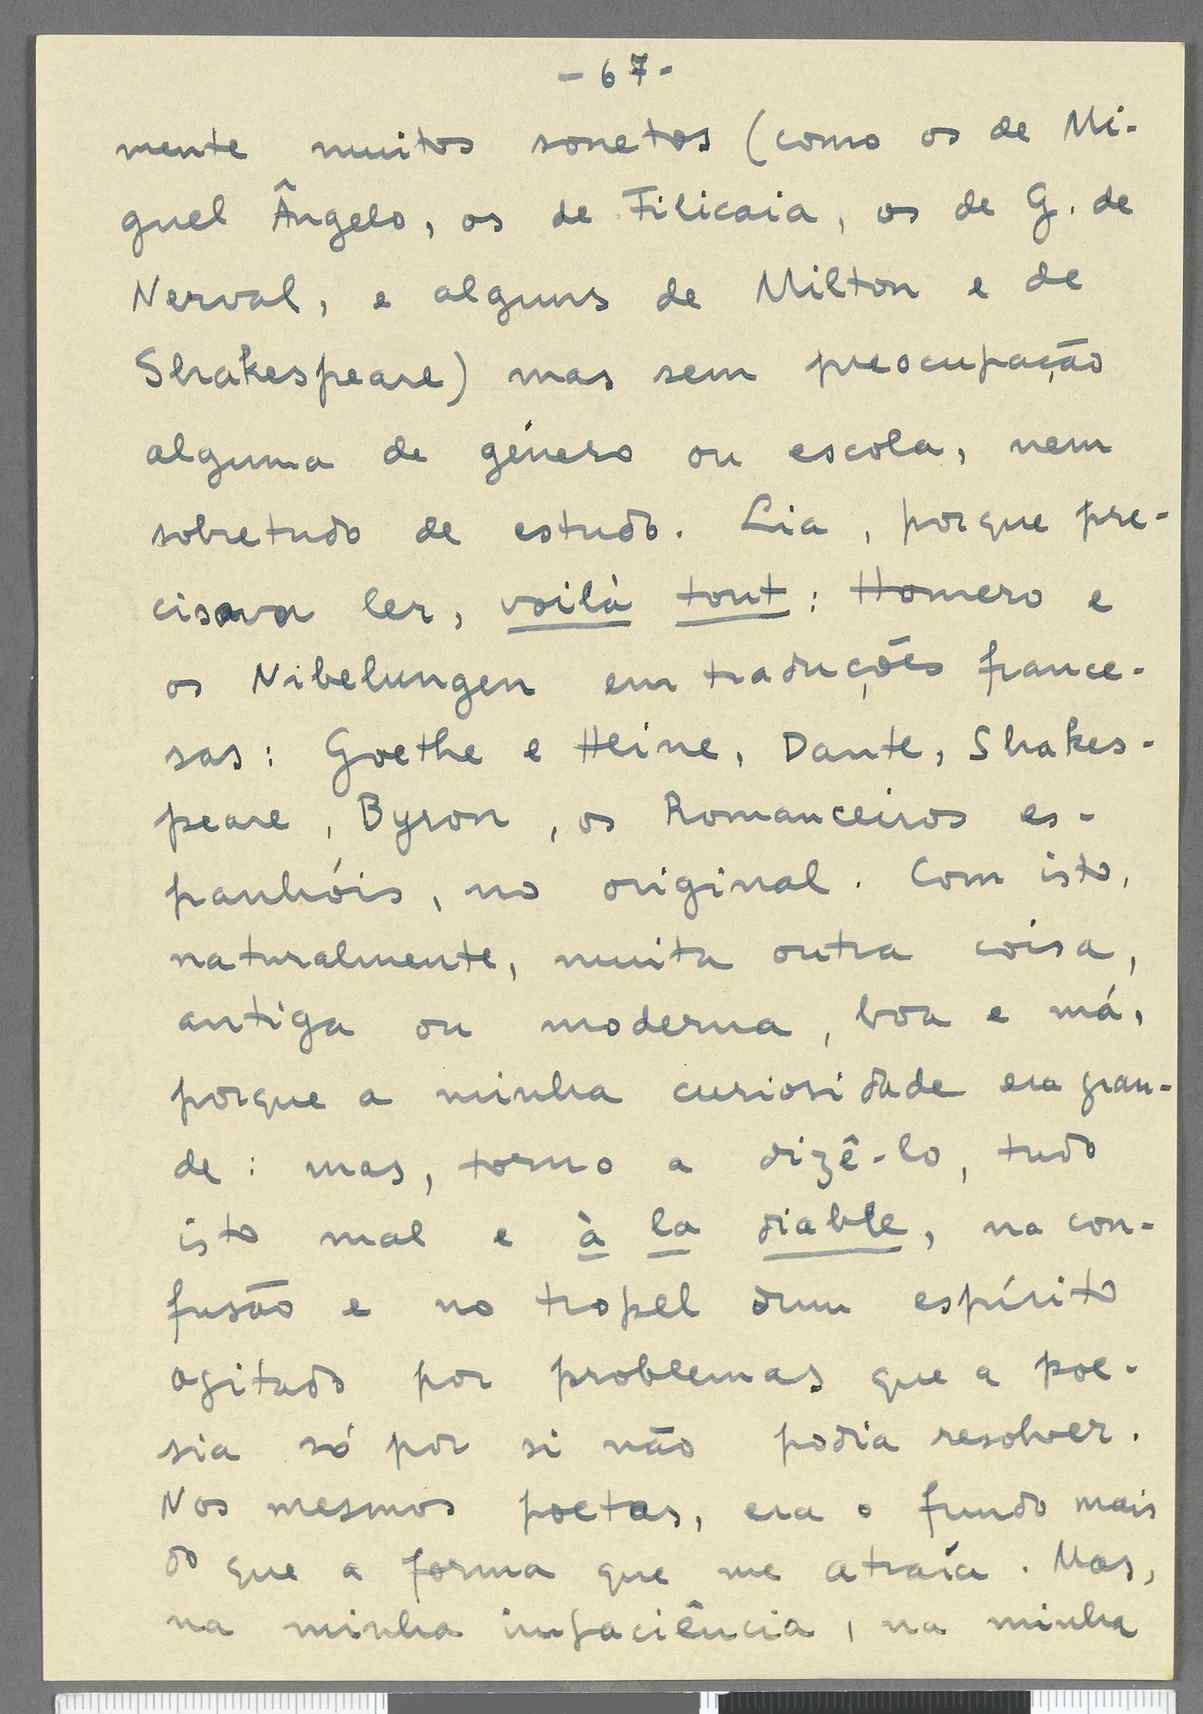 - 67 -
mente muitos sonetos (como os de Mi-
guel Ângelo, os de Filicaia, os de G. de
Nerval, e alguns de Milton e de
Shakespeare) mas sem preocupação
alguma de género ou escola, nem
sobretudo de estudo. Lia, porque pre-
cisava ler, voilà tout: Homero e
os Nibelungen em traduções france-
sas: Goethe e Heine, Dante, Shakes-
peare, Byron, os Romanceiros es-
panhóis, no original. Com isto,
naturalmente, muita outra coisa,
antiga ou moderna, boa e má,
porque a minha curiosidade era gran-
de: mas, torno a dizê-lo, tudo
isto mal e à la diable, na con-
fusão e no tropel dum espírito
agitado por problemas que a poe-
sia só por si não podia resolver.
Nos mesmos poetas, era o fundo mais
do que a forma que me atraía. Mas,
na minha impaciência, na minha